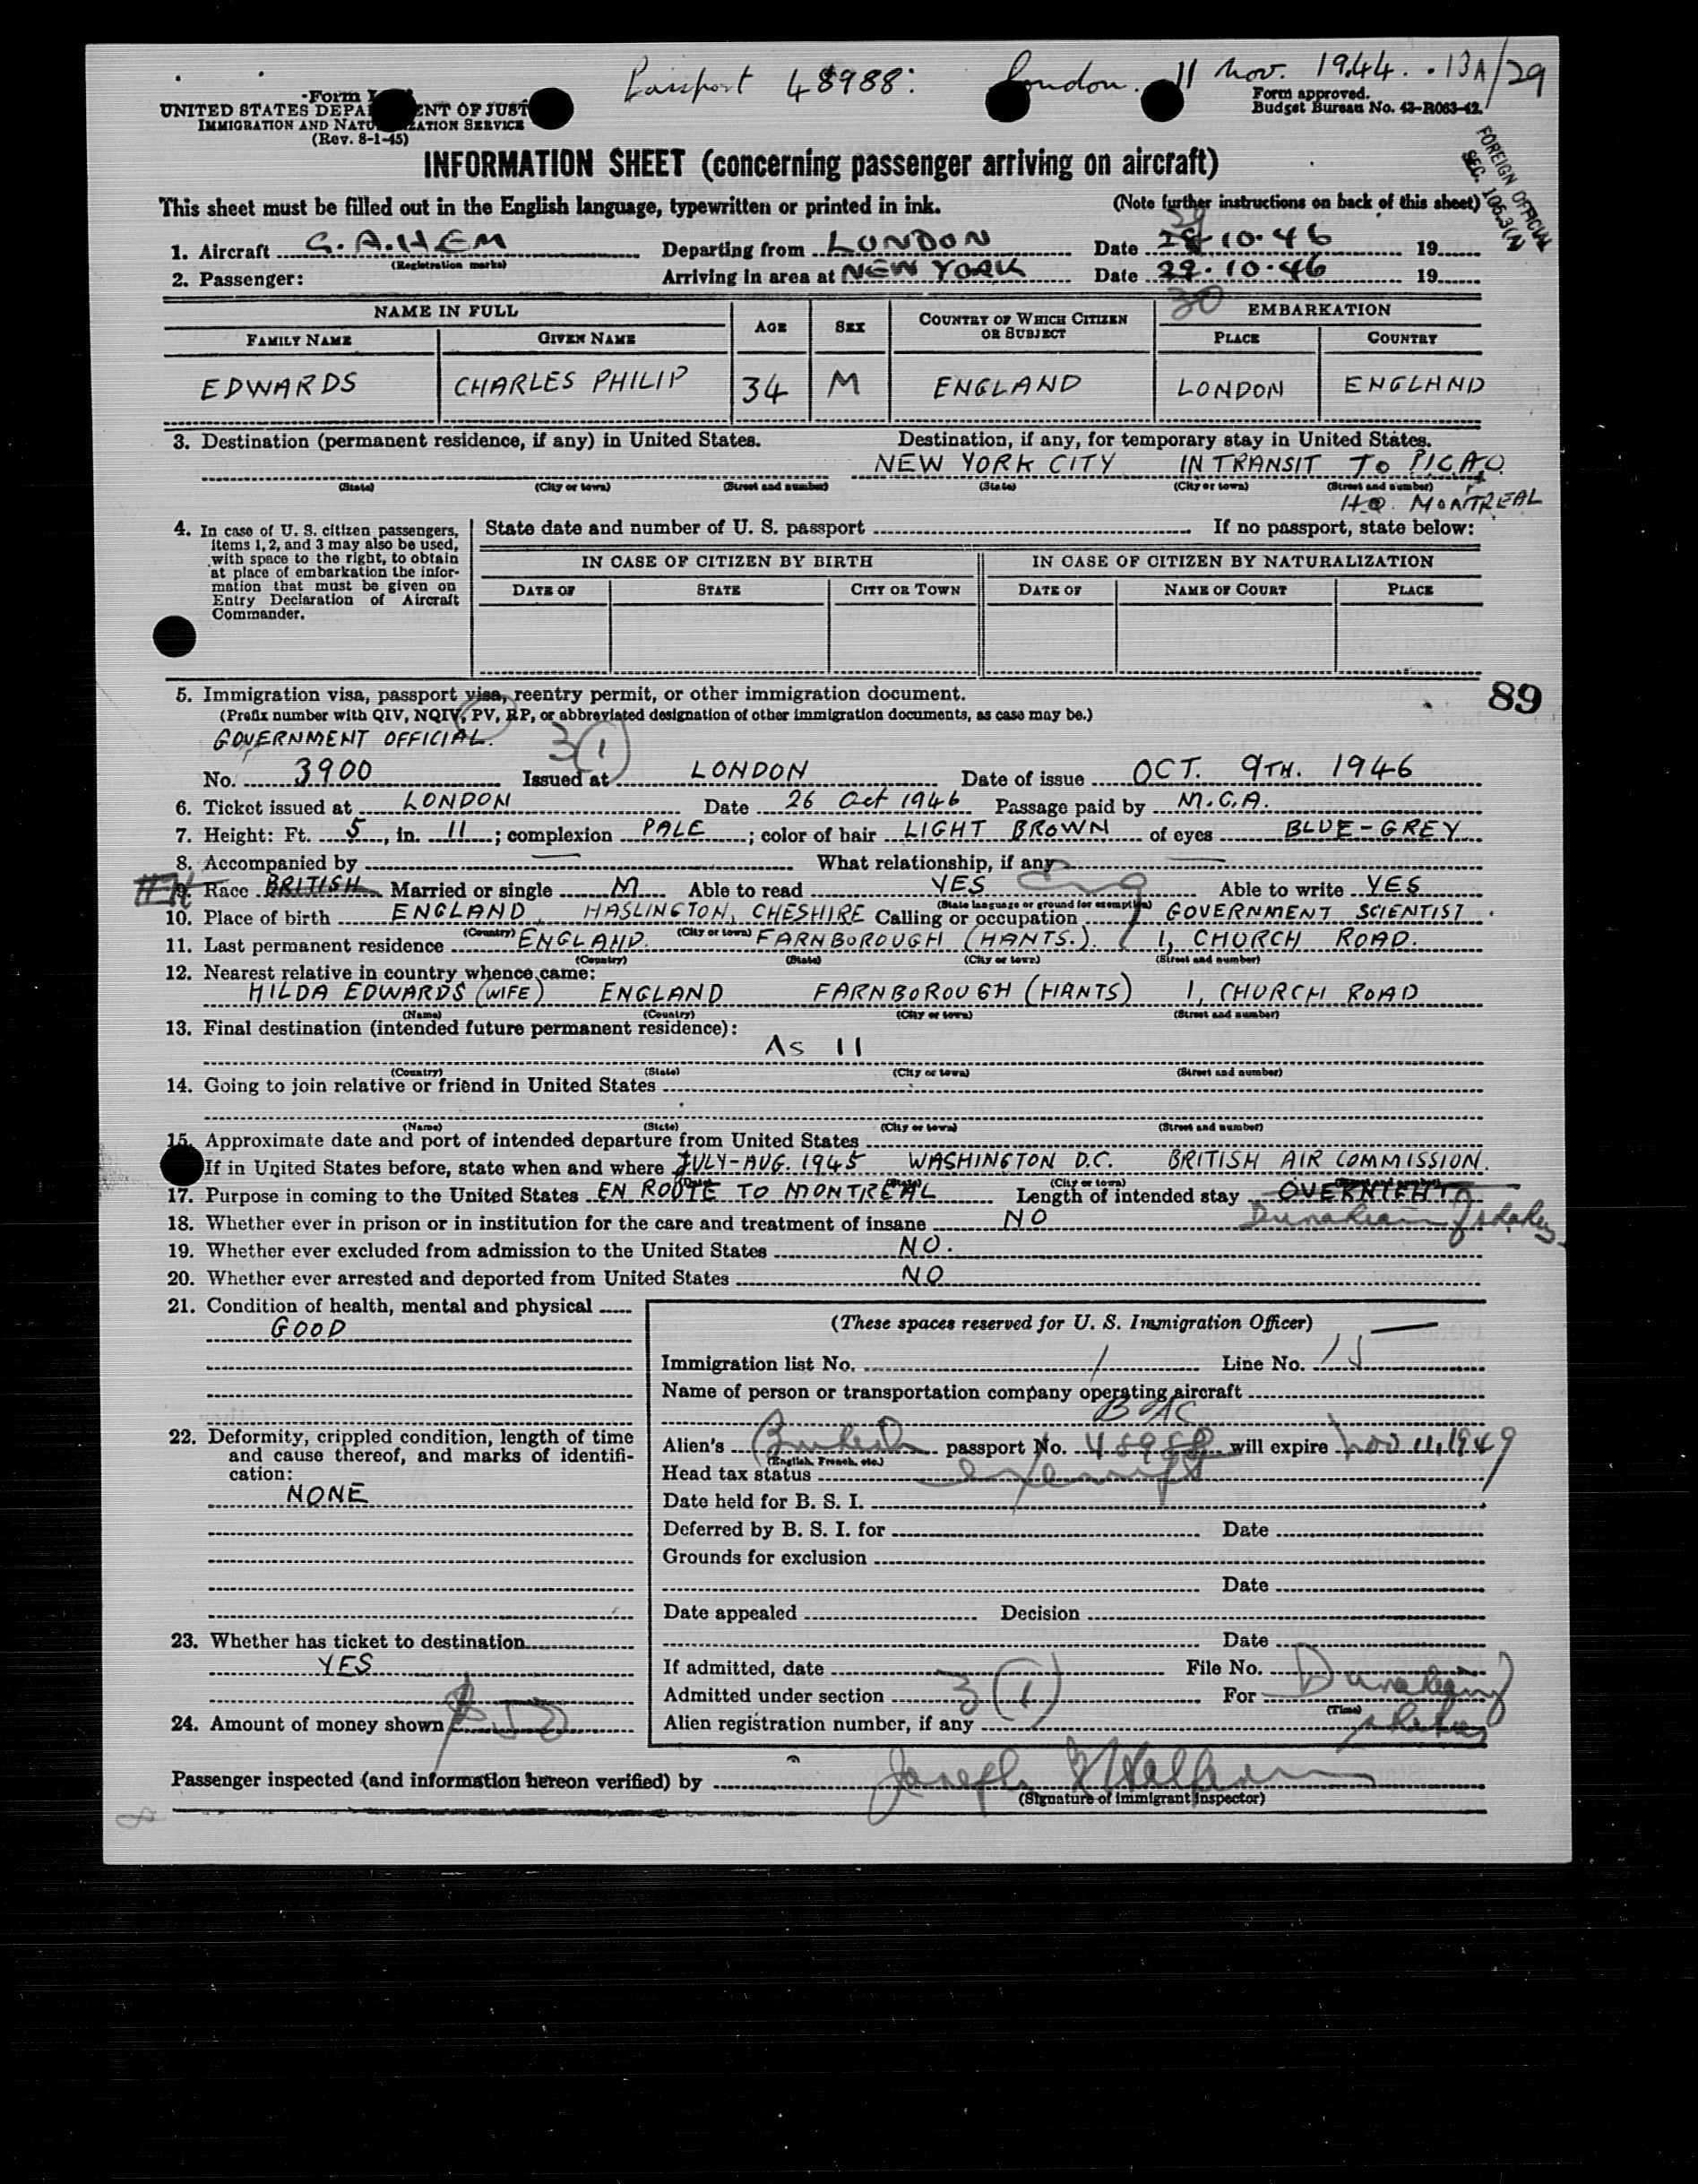 Passport 48988: London. 11 Nov. 1944. 13A/29
Form
UNITED STATES DEPA ENT OF JUST
IMMIGRATION AND NATU ZATION SERVICE
(Rev. 8-1-45)
Form approved.
Budget Bureau No. 43-R063-42.
FOREIGN OFFICIAL
SEC.
INFORMATION SHEET (concerning passenger arriving on aircraft)
This sheet must be filled out in the English language, typewritten or printed in ink. (Note further instructions on back of this sheet)
1. Aircraft G.A.HEM Departing from LONDON Date 10.46 19
(Registration marks)
2. Passenger: Arriving in area at NEW YORK Date 29.10.46 19
30
NAME IN FULL AGE SEX COUNTRY OF WHICH CITIZEN OR SUBJECT EMBARKATION
FAMILY NAME GIVEN NAME PLACE COUNTRY
EDWARDS CHARLES PHILIP 34 M ENGLAND LONDON ENGLAND
3. Destination (permanent residence, if any) in United States. Destination, if any, for temporary stay in United States.
NEW YORK CITY IN TRANSIT TO P.I.C.A.O.
(State) (City or town) (Street and number) (State) (City or town) (Street and number)
H.Q. MONTREAL
4. In case of U. S. citizen passengers, items 1, 2, and 3 may also be used, with space to the right, to obtain at place of embarkation the information that must be given on Entry Declaration of Aircraft Commander.
State date and number of U. S. passport If no passport, state below:
IN CASE OF CITIZEN BY BIRTH IN CASE OF CITIZEN BY NATURALIZATION
DATE OF STATE CITY OR TOWN DATE OF NAME OF COURT PLACE
89
5. Immigration visa, passport visa, reentry permit, or other immigration document.
(Prefix number with QIV, NQIV, PV, RP, or abbreviated designation of other immigration documents, as case may be.)
GOVERNMENT OFFICIAL. 3(1)
No. 3900 Issued at LONDON Date of issue OCT. 9TH. 1946
6. Ticket issued at LONDON Date 26 Oct 1946 Passage paid by M.C.A.
7. Height: Ft. 5, in. 11; complexion PALE; color of hair LIGHT BROWN of eyes BLUE-GREY
8. Accompanied by — What relationship, if any —
9. Race BRITISH Married or single M Able to read YES Eng Able to write YES
(State language or ground for exemption)
10. Place of birth ENGLAND, HASLINGTON, CHESHIRE Calling or occupation GOVERNMENT SCIENTIST.
(Country) (City or town)
11. Last permanent residence ENGLAND. FARNBOROUGH (HANTS.). 1, CHURCH ROAD.
(Country) (State) (City or town) (Street and number)
12. Nearest relative in country whence came:
HILDA EDWARDS (WIFE) ENGLAND FARNBOROUGH (HANTS) 1, CHURCH ROAD
(Name) (Country) (City or town) (Street and number)
13. Final destination (intended future permanent residence):
AS 11
(Country) (State) (City or town) (Street and number)
14. Going to join relative or friend in United States
(Name) (State) (City or town) (Street and number)
15. Approximate date and port of intended departure from United States
If in United States before, state when and where JULY-AUG. 1945 WASHINGTON D.C. BRITISH AIR COMMISSION.
17. Purpose in coming to the United States EN ROUTE TO MONTREAL Length of intended stay OVERNIGHT
18. Whether ever in prison or in institution for the care and treatment of insane NO
19. Whether ever excluded from admission to the United States NO.
20. Whether ever arrested and deported from United States NO
21. Condition of health, mental and physical
GOOD
22. Deformity, crippled condition, length of time and cause thereof, and marks of identification:
NONE
23. Whether has ticket to destination
YES
24. Amount of money shown
(These spaces reserved for U. S. Immigration Officer)
Immigration list No. 1 Line No.
Name of person or transportation company operating aircraft
BOAC
Alien's British passport No. 48988 will expire Nov 11, 1949
(English, French, etc.)
Head tax status exempt
Date held for B. S. I.
Deferred by B. S. I. for Date
Grounds for exclusion
Date
Date appealed Decision
Date
If admitted, date File No.
Admitted under section 3(1) For Duration of
(Time)
Alien registration number, if any status
Passenger inspected (and information hereon verified) by Joseph
(Signature of immigrant inspector)